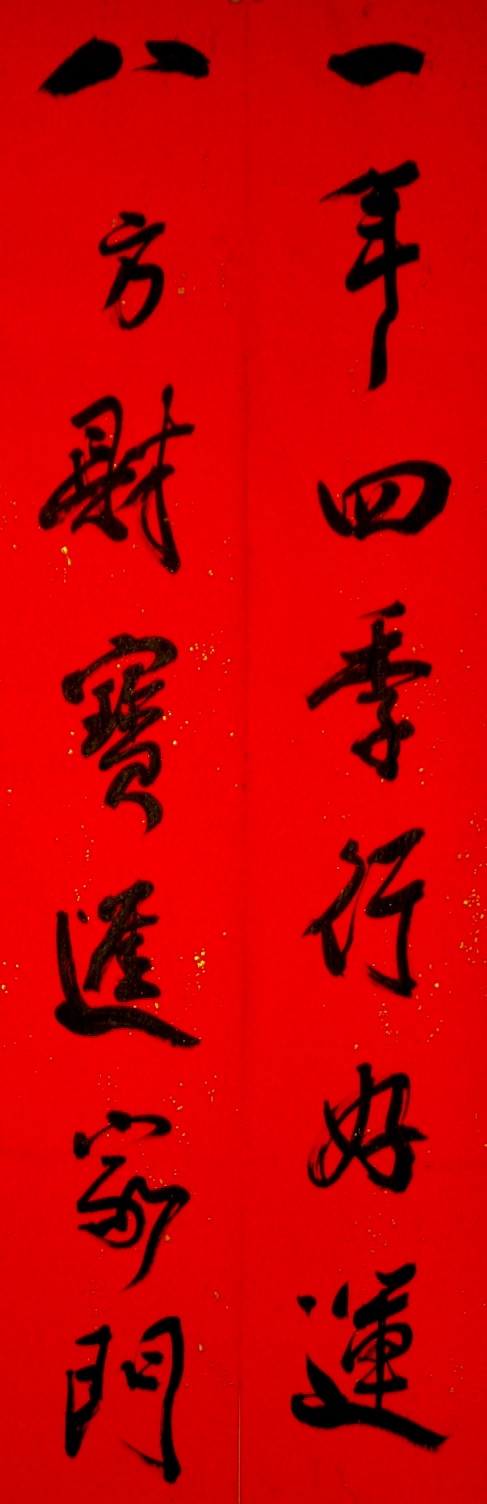 一年四季行好運
八方財寶進家門